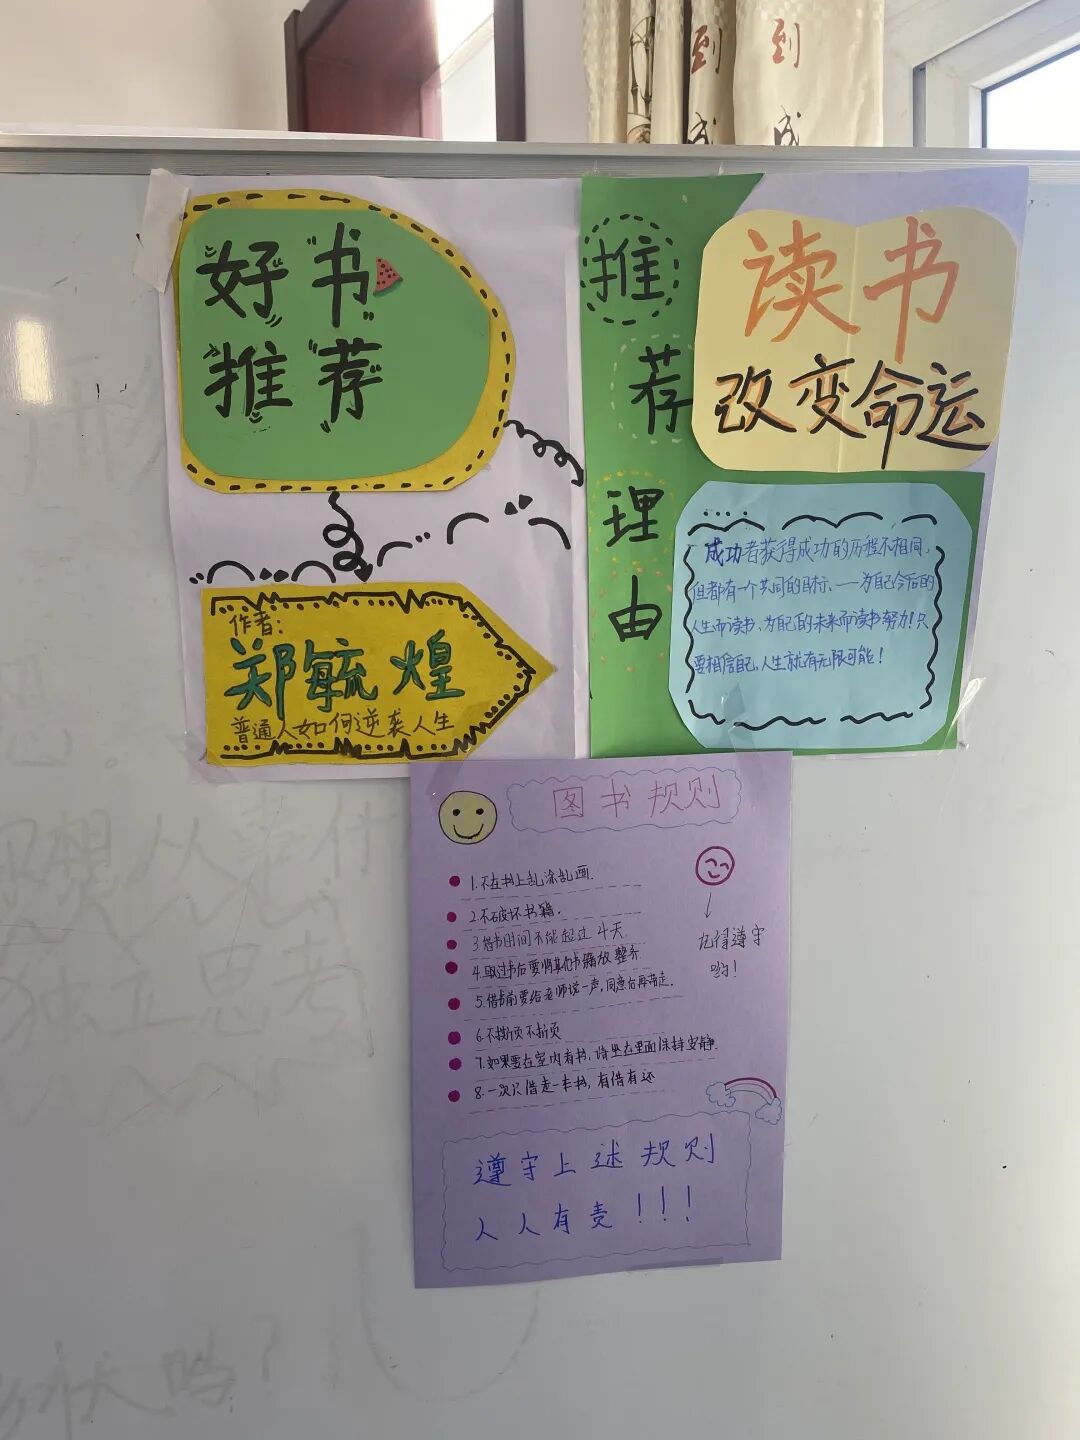 到 到
成 成
好书
推荐
作者:
郑毓煌
普通人如何逆袭人生
推
荐
理
由
读书
改变命运
成功者获得成功的历程不相同,
但都有一个共同的目标、——为自己今后的
人生而读书、为自己的未来而读书努力!只
要相信自己,人生就有无限可能!
图书规则
1.不在书上乱涂乱画.
2.不破坏书籍.
3借书时间不能超过4天.
4.取过书后要将其他书籍放整齐
5.借书前要给老师说一声,同意后再带走.
6.不撕页不折页
7.如果要在室内看书,请坐在里面保持安静.
8.一次只借走一本书,有借有还
记得遵守
哟!
遵守上述规则
人人有责!!!
想从事什
独立思考
状吗?